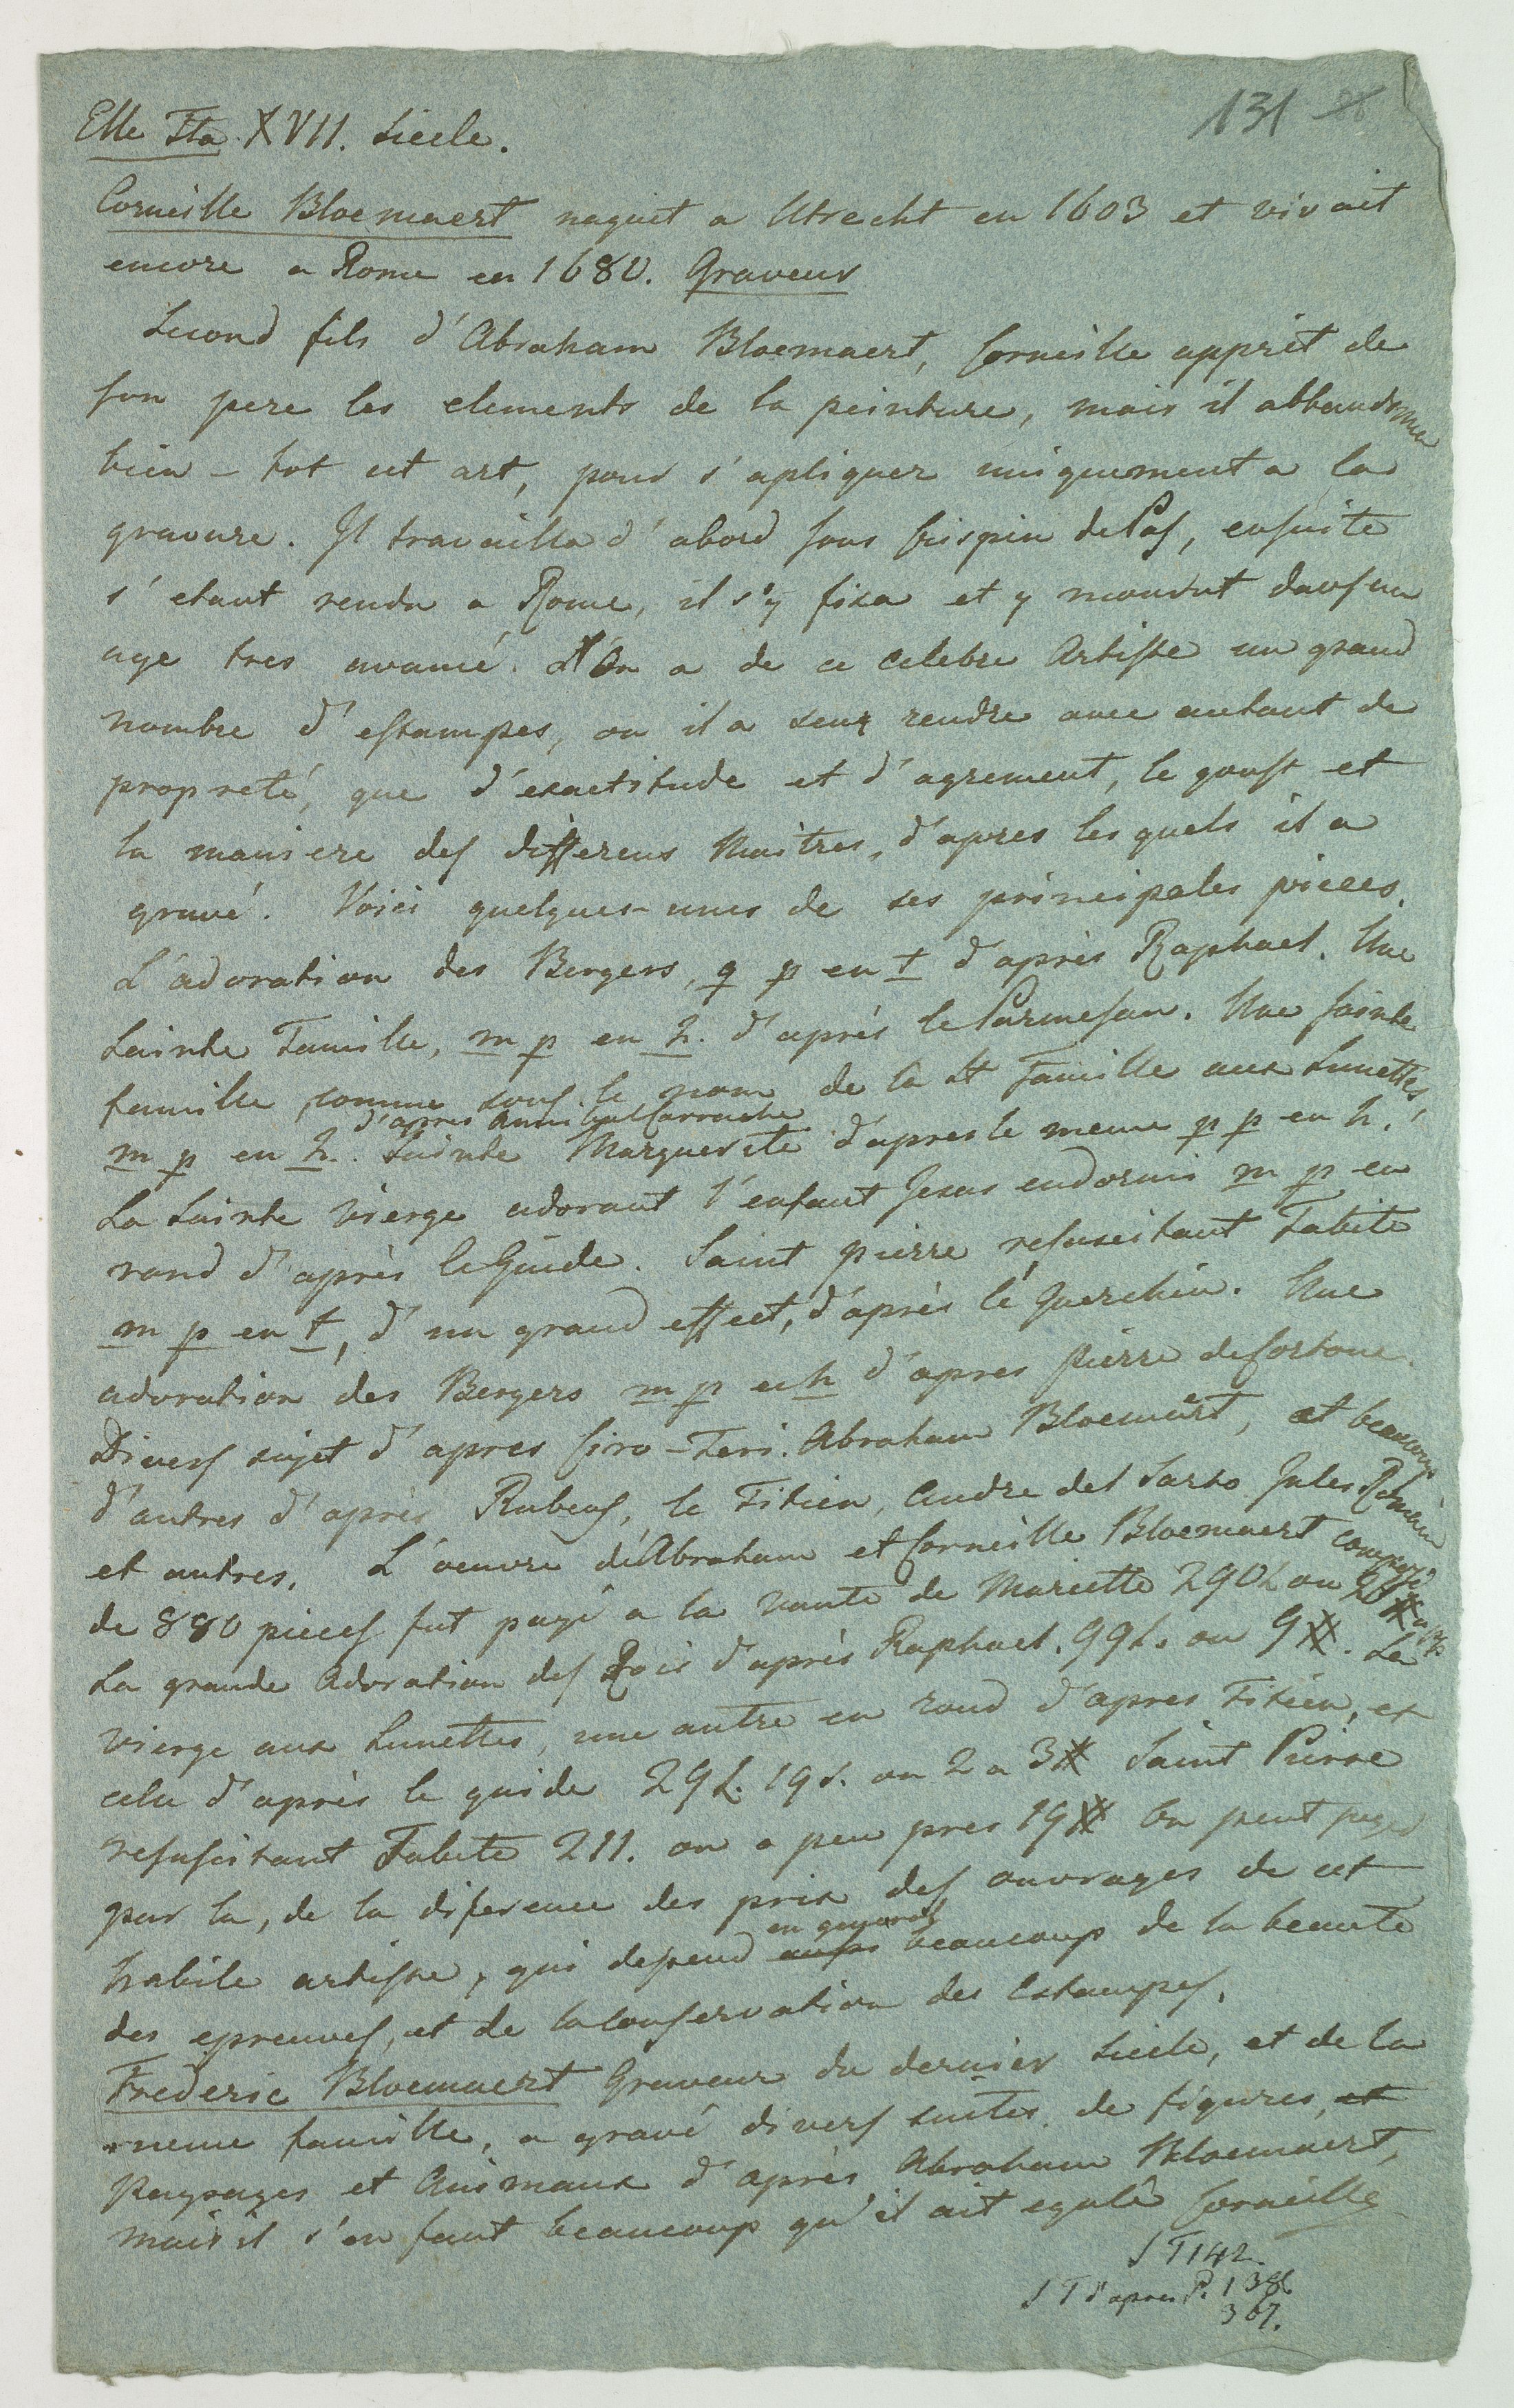 Elle Ita XVII. siecle.
131 38
Corneille Bloemaert naquit a Utrecht en 1603 et vivait
encore a Rome en 1680. Graveur
Second fils d'Abraham Bloemaert, Corneille apprit de
son pere les elements de la peinture, mais il abbandonna
bien-tot cet art, pour s'apliquer uniquement a la
gravure. Il travailla d'abord sous Crispin de Pas, ensuite
s'etant rendu a Rome, il s'y fixa et y mourut dans un
age tres avancé. L'On a de ce celebre Artiste un grand
nombre d'estampes, ou il a seu rendre avec autant de
propreté, que d'exactitude et d'agrement, le goust et
la maniere des differens Maitres, d'apres lesquels il a
gravé. Voici quelques-unes de ses principales pieces.
L'adoration des Bergers, g p en t d'après Raphael. Une
Sainte Famille, m p en h. d'aprés le Parmesan. Une sainte
famille, connue sous le nom de la St Famille aux Lunettes,
d'apres Annibal Carrache
m p en h. Sainte Marguerite d'apres le meme p p en h.
La Sainte Vierge adorant l'enfant Jesus endormi m p en
rond d'après le Guide. Saint pierre resuscitant Tabite
m p en t, d'un grand effect, d'après le Guerchin. Une
adoration des Bergers m p en h d'apres Pierre de Cortone.
Divers sujet d'apres Ciro-Feri. Abraham Bloemaert, et beaucoup
d'autres d'après Rubens, le Titien, Andre del Sarto Jules Romain
et autres. L'oeuvre d'Abraham et Corneille Bloemaert composé
de 880 pieces fut payé a la vante de Mariette 290 L ou
La grande Adoration des Rois d'après Raphael. 99 L. ou 9 #. La
vierge aux Lunettes, une autre en rond d'apres Titien, et
celu d'après le guide 29 L. 19 s. ou 2 a 3 # Saint Pierre
resuscitant Tabite 211. ou a peu pres 19 # On peut juger
par la, de la diference des prix des ouvrages de cet
en general
habile artiste, qui depend aussi beaucoup de la beaute
des epreuves, et de la conservation des Estampes.
Frederic Bloemaert Graveur du dernier siecle, et de la
meme famille, a gravé divers suites de figures, et
paysages et Animaux d'après Abraham Bloemaert,
mais il s'en faut beaucoup qu'il ait egalé Corneille
S T 142.
S T d'apres P. 1 386
367.